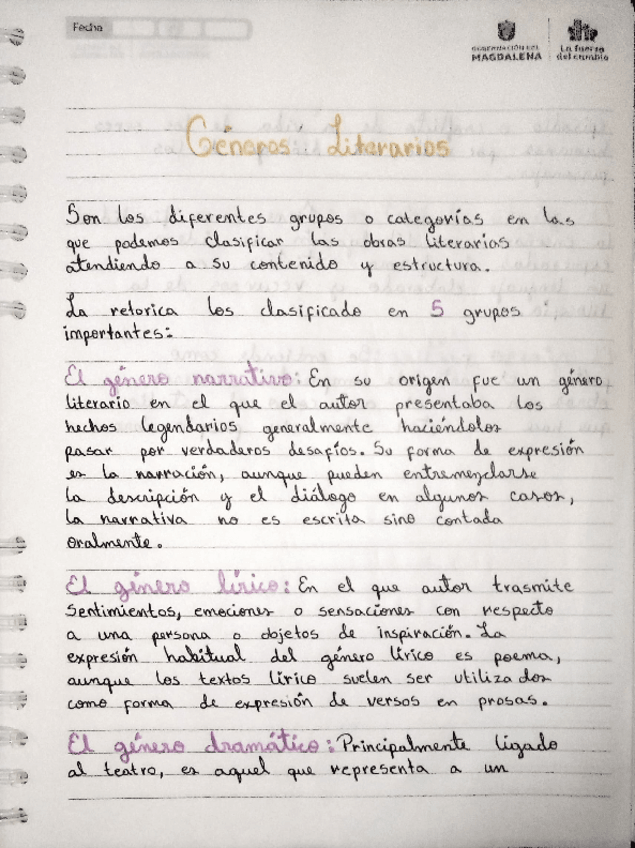 Fecha
GOBERNACIÓN DEL
MAGDALENA
La fuerza
del cambio
Géneros Literarios
Son los diferentes grupos o categorías en las
que podemos clasificar las obras literarias
atendiendo a su contenido y estructura.
La retorica los clasificado en 5 grupos
importantes:
El género narrativo: En su origen fue un género
literario en el que el autor presentaba los
hechos legendarios generalmente haciéndolos
pasar por verdaderos desafíos. Su forma de expresión
es la narración, aunque pueden entremezclarse
la descripción y el diálogo en algunos casos,
la narrativa no es escrita sino contada
oralmente.
El género lírico: En el que autor trasmite
sentimientos, emociones o sensaciones con respecto
a una persona o objetos de inspiración. La
expresión habitual del género lírico es poema,
aunque los textos lírico suelen ser utilizados
como forma de expresión de versos en prosas.
El género dramático: Principalmente ligado
al teatro, es aquel que representa a un